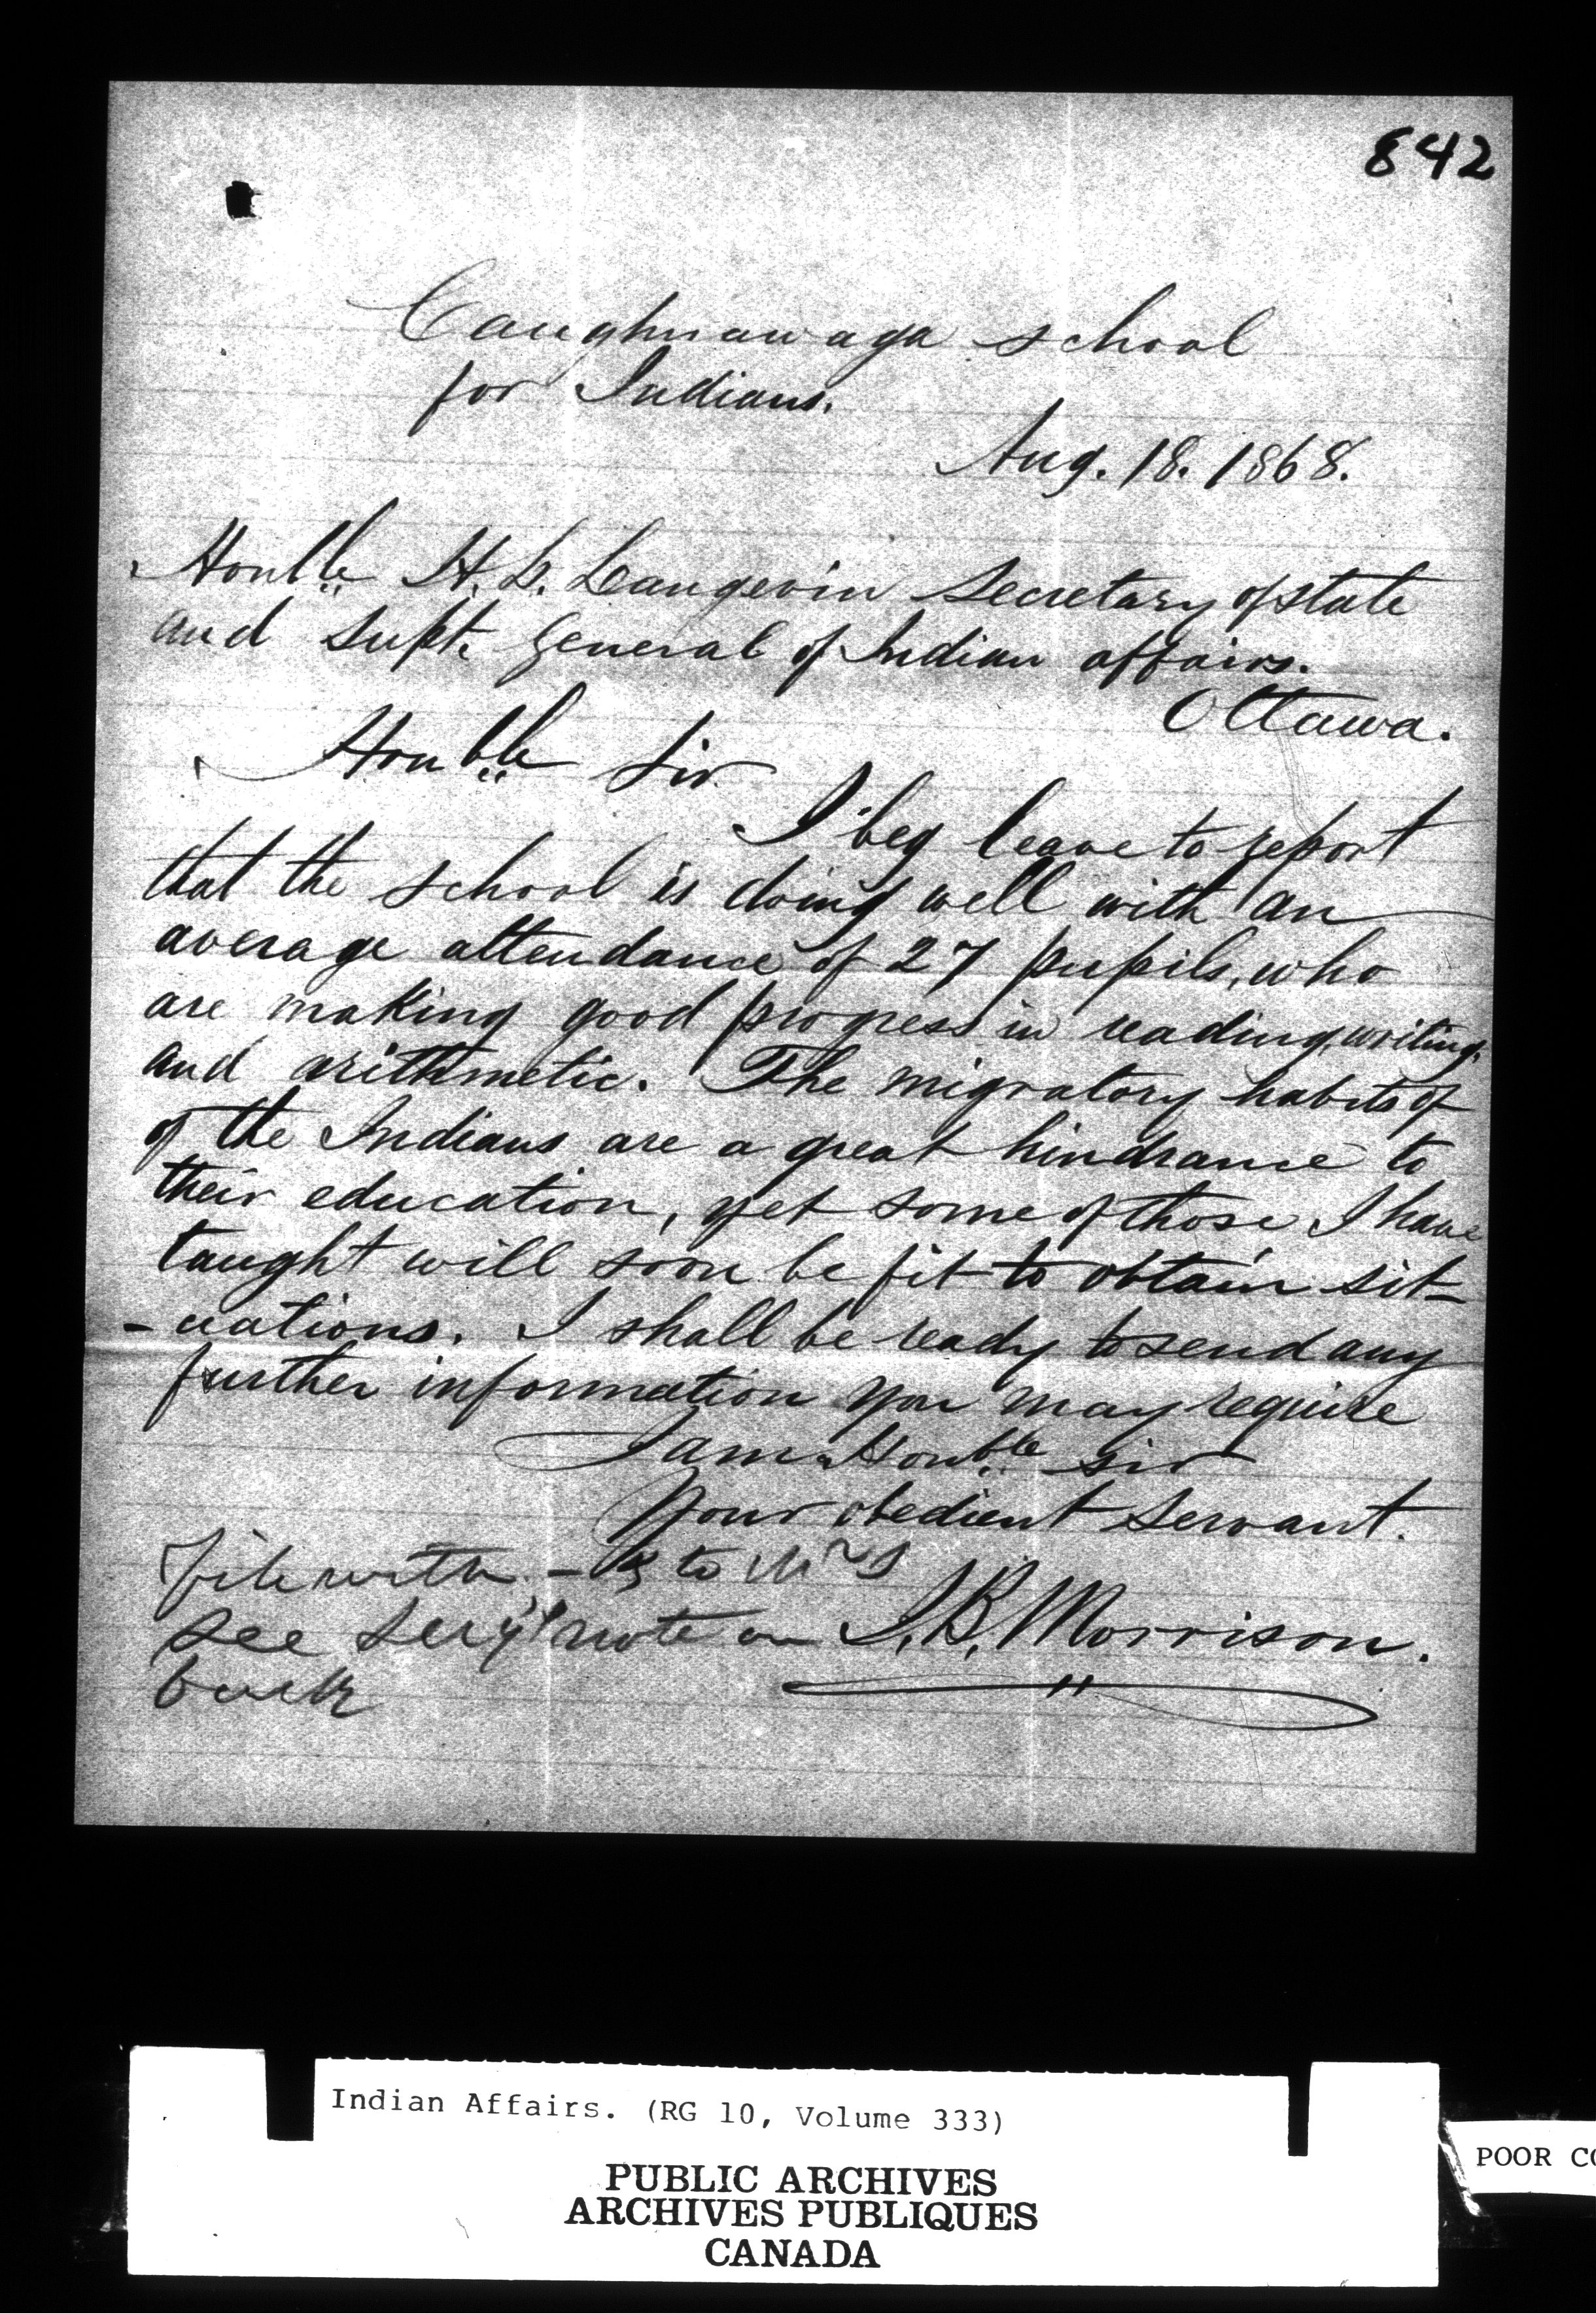 842
Caughnawaga school
for Indians.
Aug. 18. 1868.
Honble H. L. Langevin Secretary of state
and Supt. General of Indian affairs.
Ottawa.
Honble Sir
I beg leave to report
that the school is doing well with an
average attendance of 27 pupils, who
are making good progress in reading, writing,
and arithmetic. The migratory habits of
of the Indians are a great hindrance to
their education, yet some of those I have
taught will soon be fit to obtain sit-
-uations. I shall be ready to send any
further information you may require
I am Honble sir
Your obedient servant.
I. B. Morrison.
File with
see note on
back
Indian Affairs. (RG 10, Volume 333)
PUBLIC ARCHIVES
ARCHIVES PUBLIQUES
CANADA
POOR